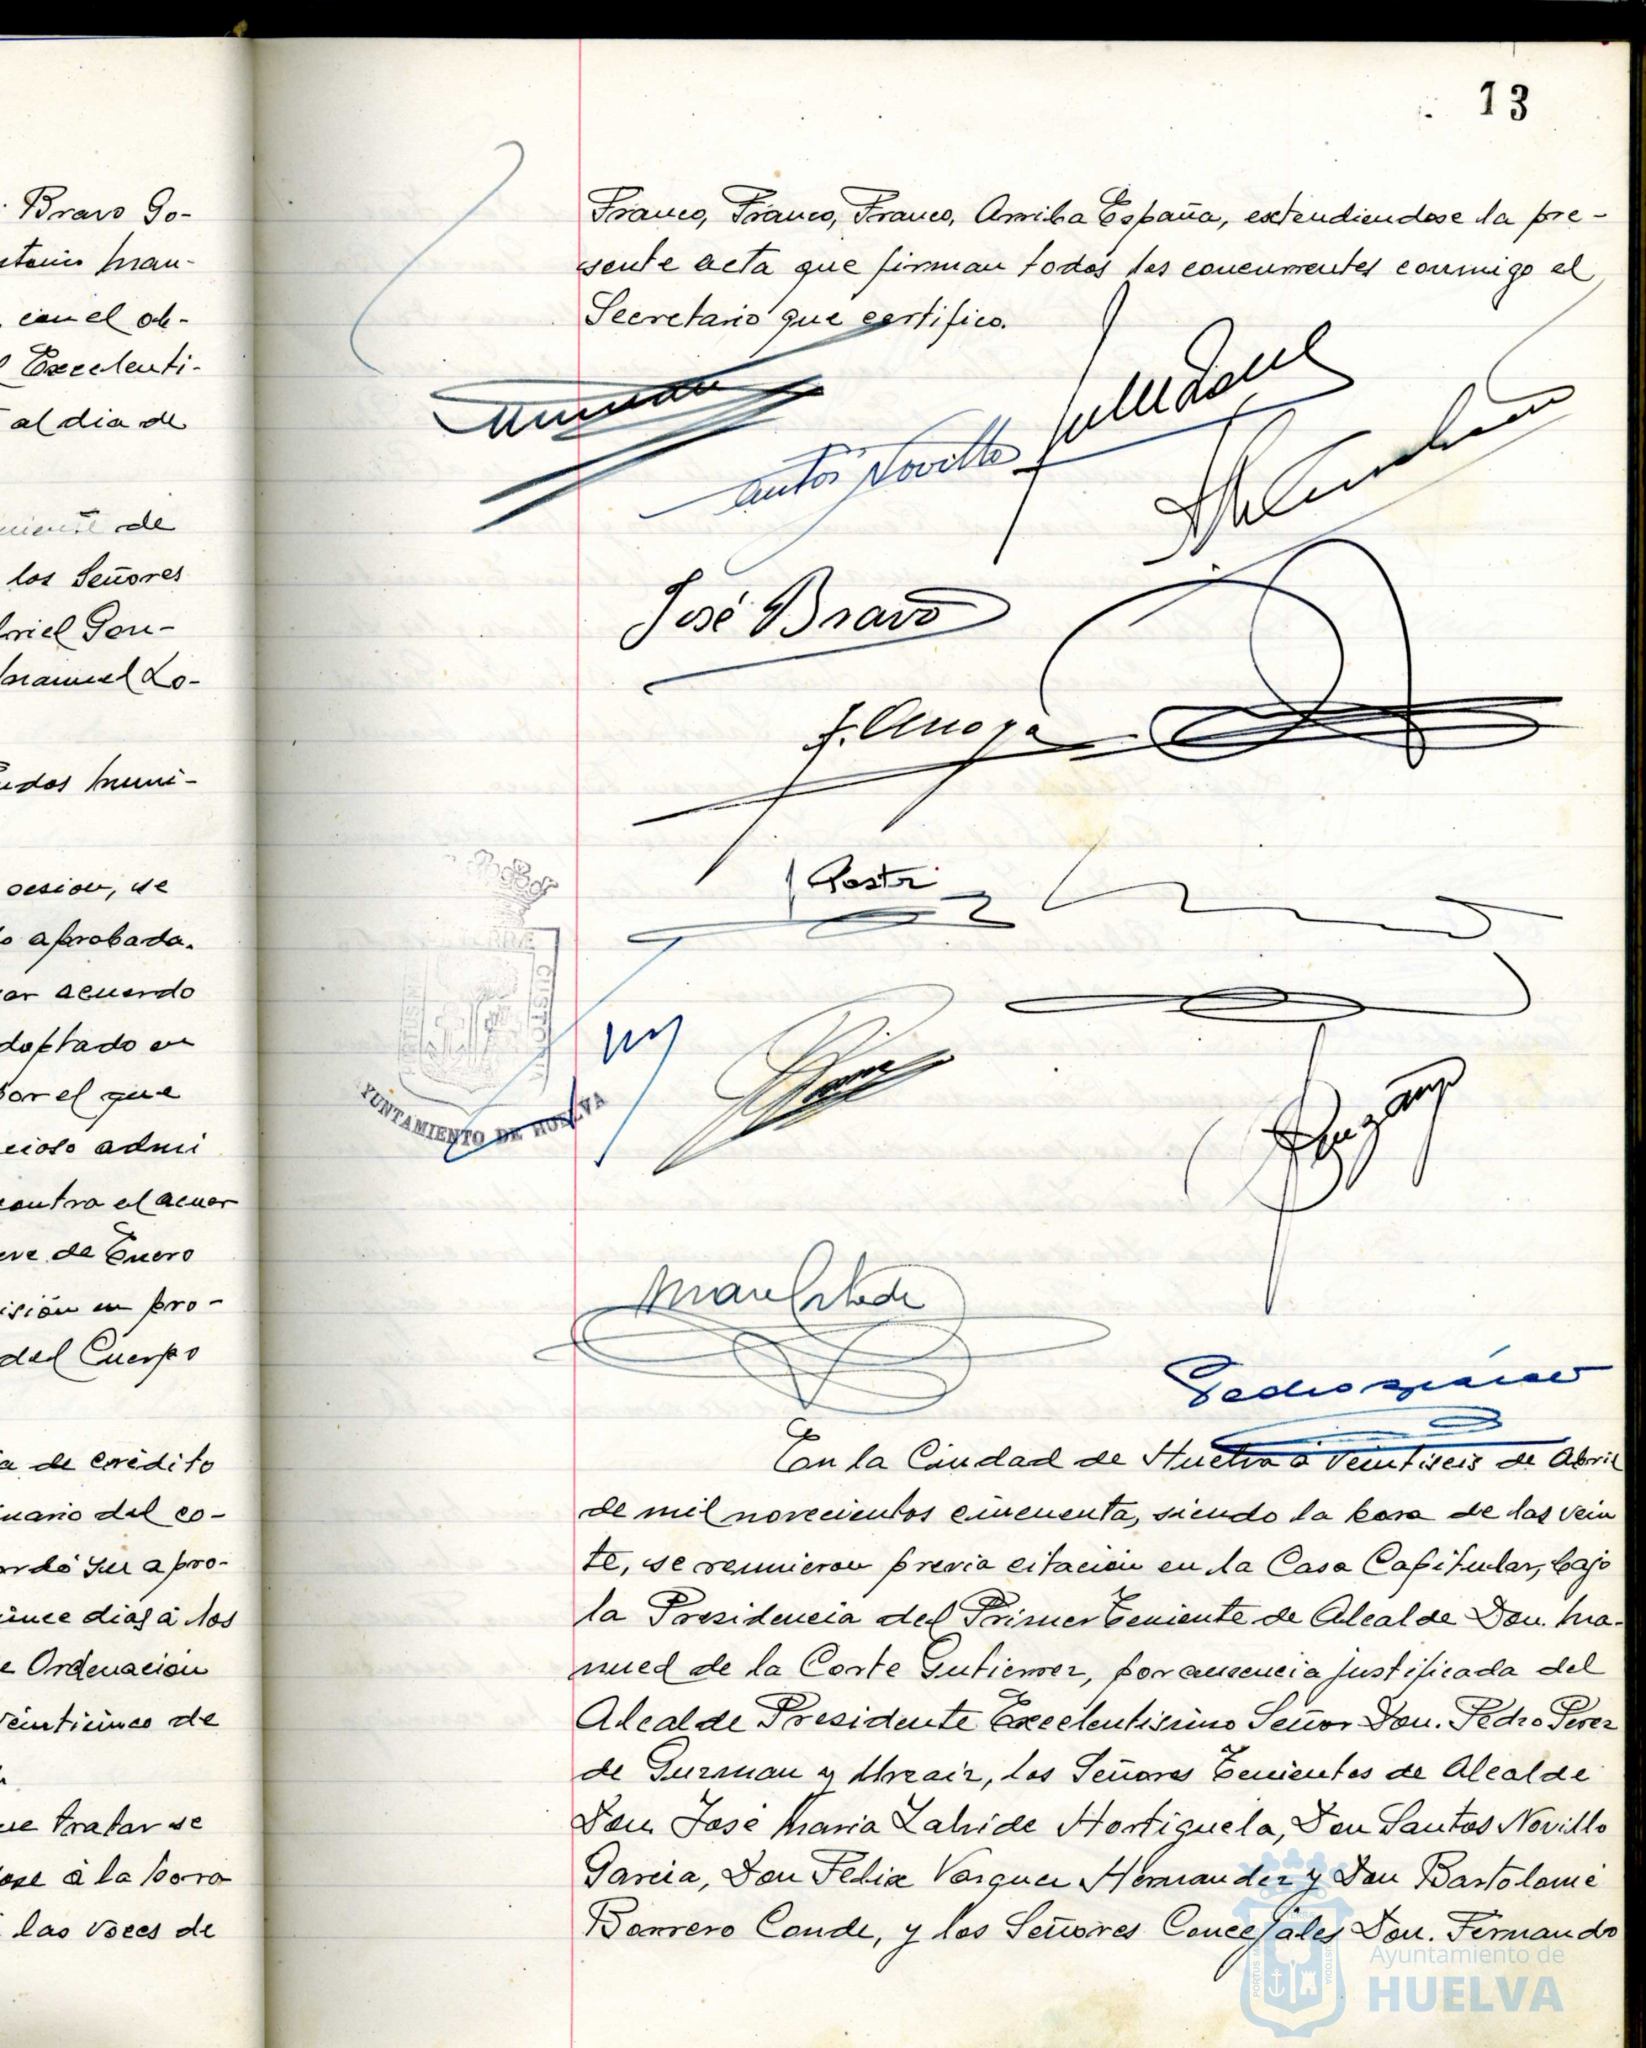 Bravo Go-
con el ob-
Excelenti-
al dia de
de
los Señores
briel Gon-
Manuel Lo-
muni-
sesion, se
aprobada.
acuerdo
doptado en
por el que
cioso admi
contra el acuer
de Enero
isión en pro-
dad Cuerpo
a de crédito
del co-
su apro-
dias á los
Ordenacion
Veinticinco de
que tratar se
á la hora
las voces de
13
Franco, Franco, Franco, Arriba España, extendiendose la pre-
sente acta que firman todos los concurrentes conmigo el
Secretario que certifico.
Santos Novillo
José Bravo
AYUNTAMIENTO DE HUELVA
En la Ciudad de Huelva á veintiseis de Abril
de mil novecientos cincuenta, siendo la hora de las vein
te, se reunieron previa citación en la Casa Capitular, bajo
la Presidencia del Primer Teniente de Alcalde Don. Ma-
nuel de la Corte Gutierrez, por ausencia justificada del
Alcalde Presidente Excelentisimo Señor Don. Pedro Perez
de Guzman y Urzaiz, los Señores Tenientes de Alcalde
Don José Maria Zalvide Hortiguela, Don Santos Novillo
Garcia, Don Felix Vazquez Hernandez y Don Bartolomé
Borrero Conde, y los Señores Concejales Don. Fernando
Ayuntamiento de
HUELVA